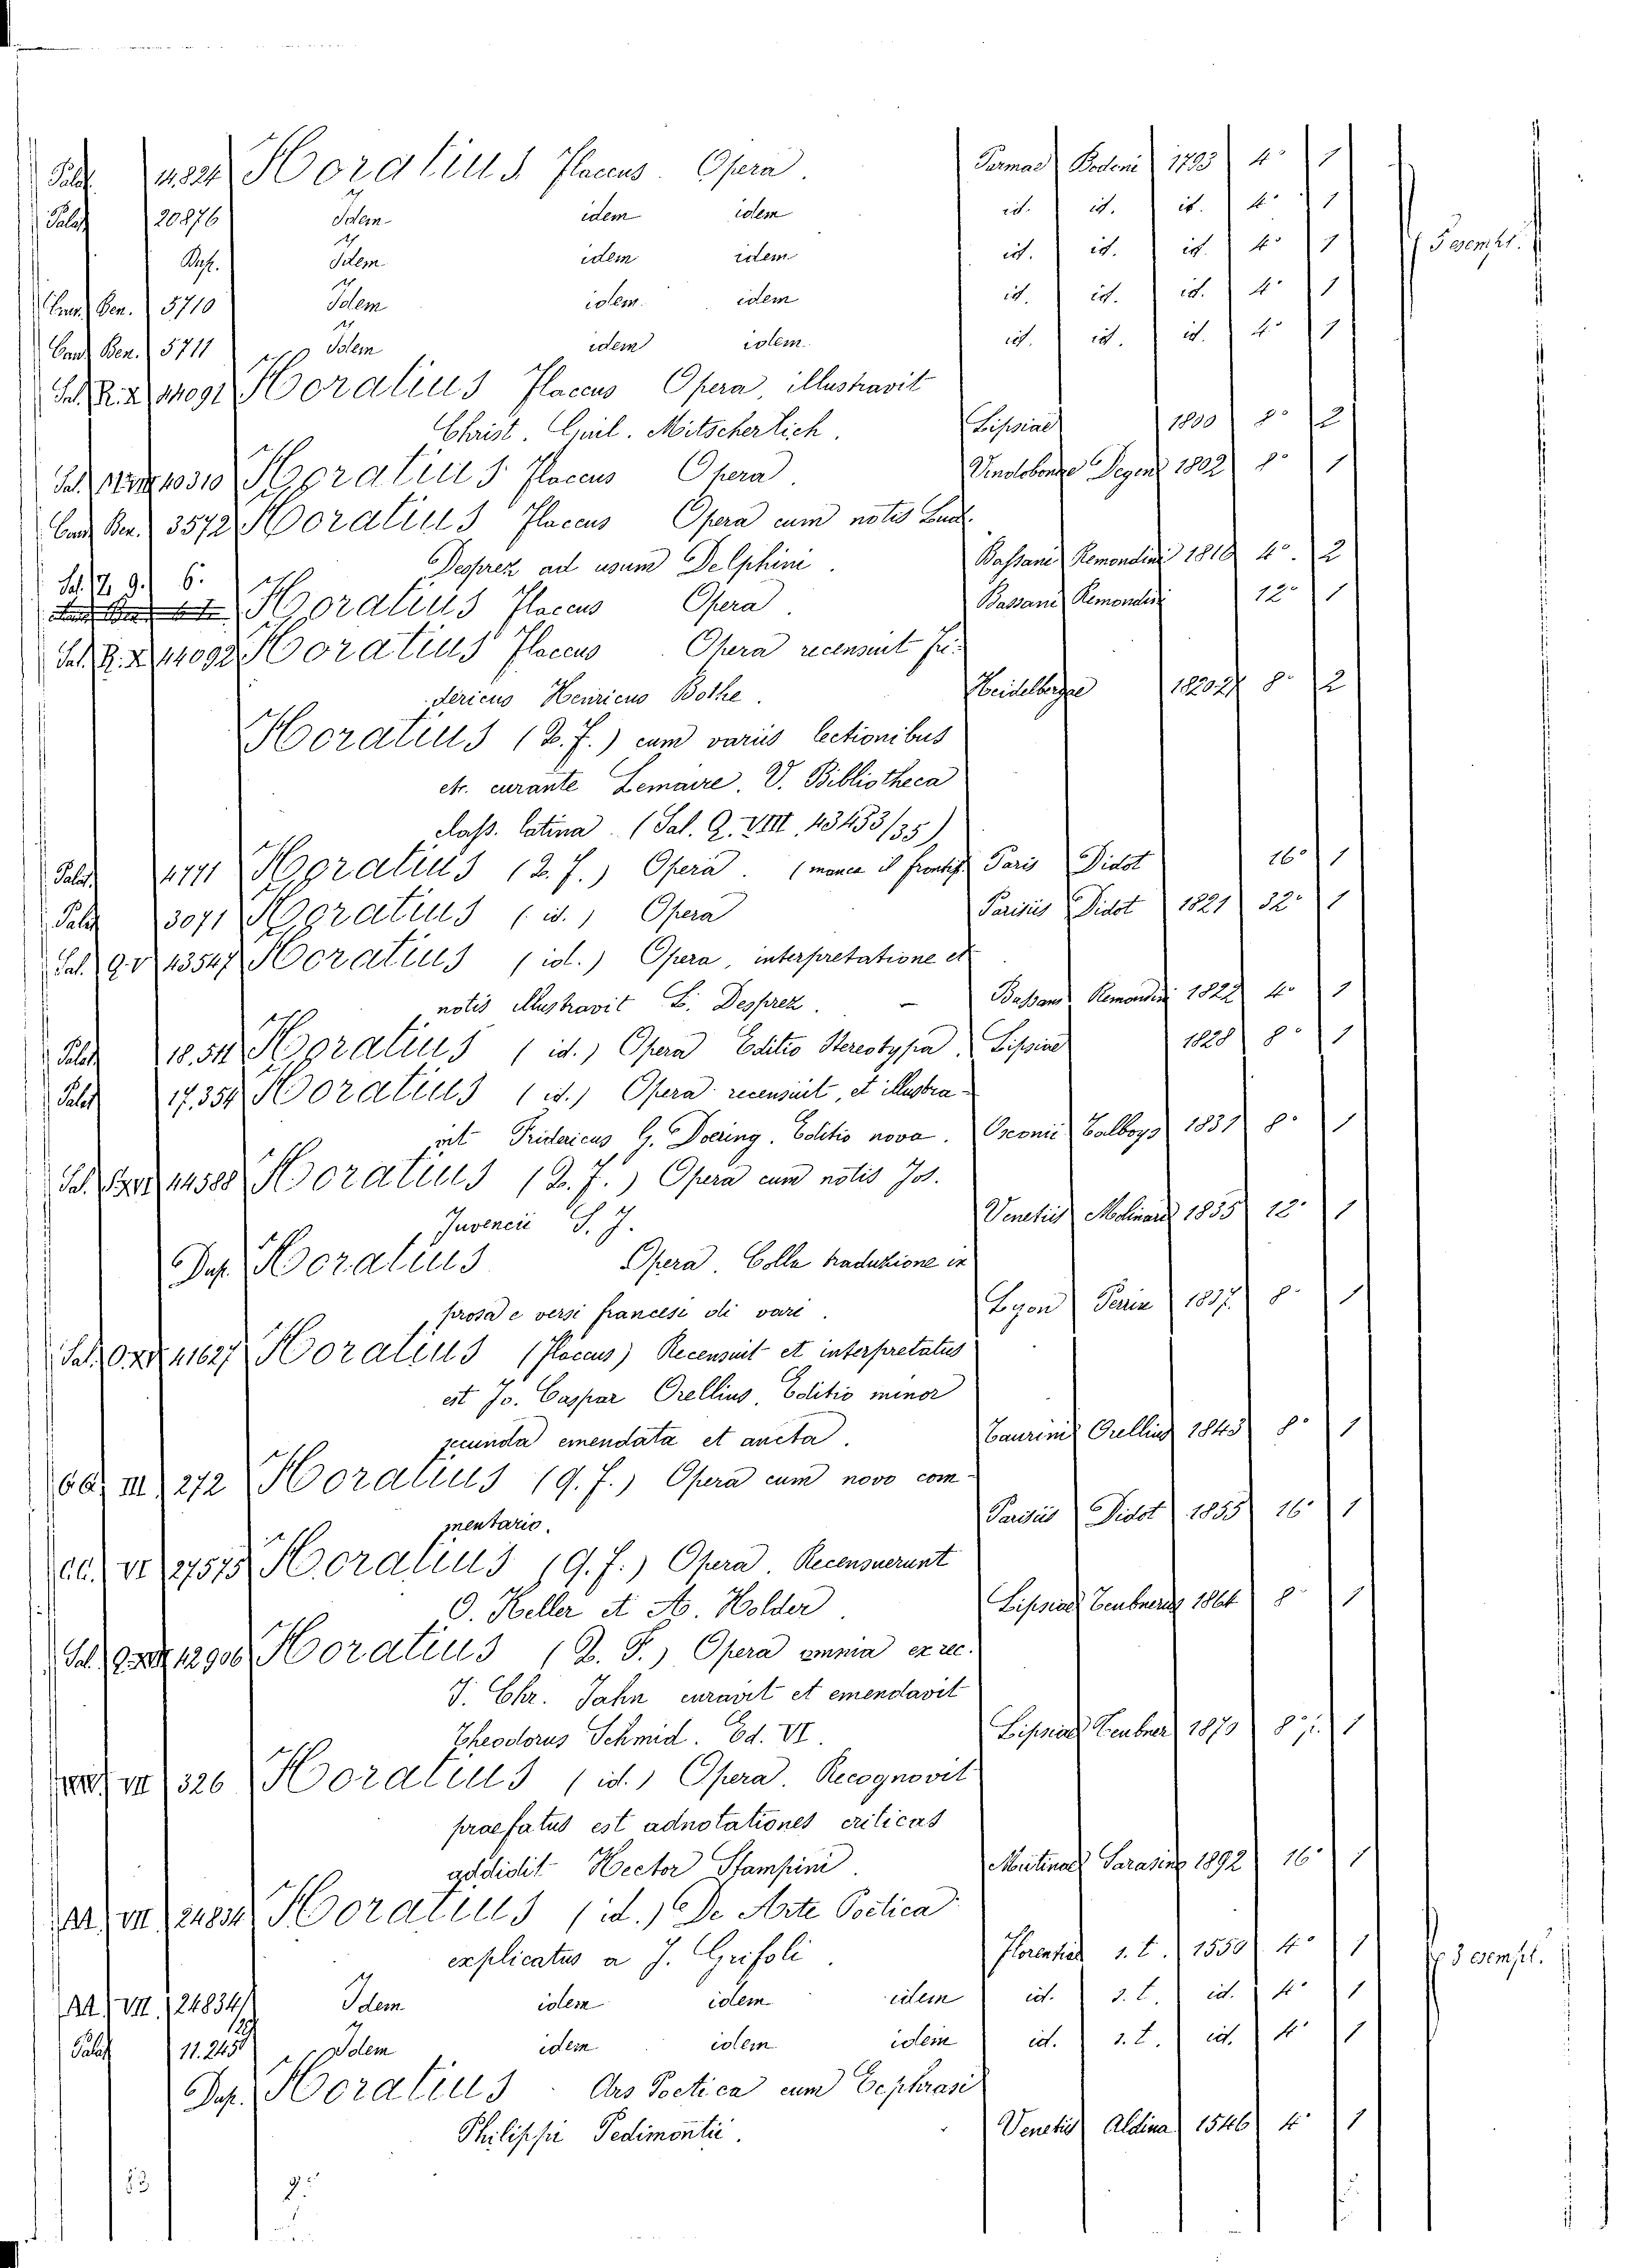 Palat. 4.824 Horatius Flaccus. Opera. Parmae Bodoni 1793 4° 1
Palat. 20876 Idem idem idem id. id. id. 4° 1
Dup. Idem idem idem id. id. id. 4° 1 5 esempl.
Can. Ben. 5710 Idem idem idem id. id. id. 4° 1
Can. Ben. 5711 Idem idem idem id. id. id. 4° 1
Sal. 14091 Horatius Flaccus Opera, illustravit
Christ. Guil. Mitscherlich. Lipsiae 1800 8° 2
Sal. 40310 Horatius Flaccus Opera. Vindobonae Degen 1802 8° 1
Can. Ben. 3572 Horatius Flaccus Opera cum notis Lud.
Desprez ad usum Delphini. Bassani Remondini 1810 4°. 2
Sal. 9. 6. Horatius Flaccus Opera. Bassani Remondini 12° 1
Sal. 14092 Horatius Flaccus Opera recensuit Fri-
dericus Henricus Bothe. Heidelbergae 8° 2
Horatius (Q. F.) cum variis lectionibus
etc. curante Lemaire. V. Bibliotheca
class. latina. (Sal. Q. VIII, 43433/35)
Palat. 4771 Horatius (Q. F.) Opera. (manca il frontisp. Paris Didot 16° 1
Palat. 3071 Horatius (id.) Opera Parisiis Didot 1821 32° 1
Sal. 43547 Horatius (id.) Opera, interpretatione et
notis illustravit L. Desprez. – Bassani Remondini 1822 4° 1
Palat. 18.511 Horatius (id.) Opera Editio Stereotypa, Lipsiae 1828 8° 1
Palat. 17.354 Horatius (id.) Opera recensuit, et illustra-
vit Fridericus G. Doering. Editio nova. Oxonii Talboys 1831 8° 1
Sal. 44588 Horatius (Q. F.) Opera cum notis Jos.
Juvencii S. J. Venetiis Molinari 1835 12° 1
Dup. Horatius Opera. Colla traduzione in
prosa e versi francesi di vari. Lyon Perin 1837. 8° 1
Sal. 41627 Horatius (Flaccus) Recensuit et interpretatus
est Jo. Caspar Orellius, Editio minor
secunda emendata et aucta. Taurinis Orellius 1845 8° 1
III 272 Horatius (Q. F.) Opera cum novo com-
mentario. Parisiis Didot 1855 16° 1
VI 27575 Horatius (Q. F.) Opera. Recensuerunt
O. Keller et A. Holder. Lipsiae Teubneri 1864 8° 1
Sal. 42906 Horatius (Q. F.) Opera omnia ex rec.
J. Chr. Jahn curavit et emendavit
Theodorus Schmid. Ed. VI. Lipsiae Teubner 1870 8° 1
VII 326 Horatius (id.) Opera. Recognovit
praefatus est adnotationes criticas
addidit Hector Stampini. Mutinae Sarasino 1892 16° 1
AA. VII 24834 Horatius (id.) De Arte Poetica
explicatus a J. Grifoli. Florentiae s. t. 1550 4° 1 3 esempl.
AA. VII. 24834/ Idem idem idem idem id. s. t. id. 4° 1
Palat. 11.245 Idem idem idem idem id. s. t. id. 4° 1
Dup. Horatius. Ars Poetica cum Ecphrasi
Philippi Pedimontii. Venetiis Aldina 1546 4° 1